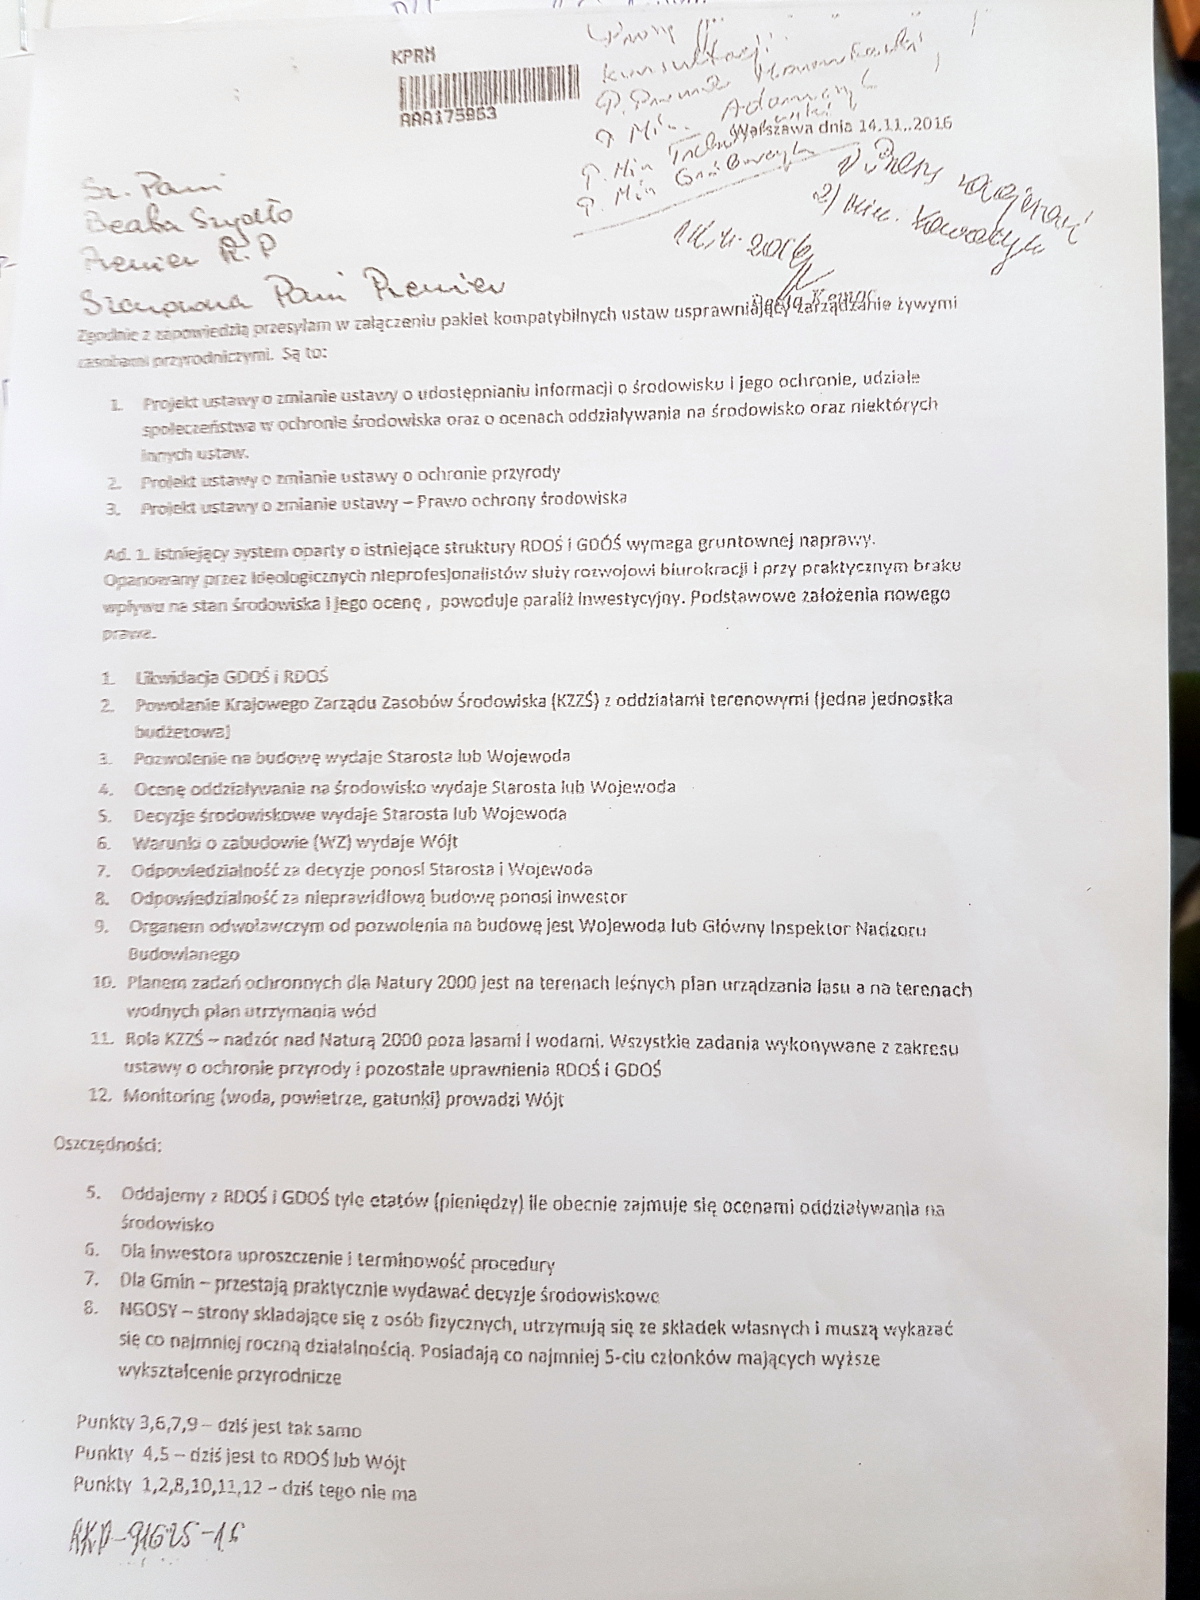 KPRM
AAA175963
konsultacji:
P. Min. Adamczyk
P. Min
P. Min
Warszawa dnia 14.11..2016
1)
2) Min. Kowalczyk
Sz. Pani
Beata Szydło
Premier R.P
Szanowna Pani Premier
Beata Kempa
Zgodnie z zapowiedzią przesyłam w załączeniu pakiet kompatybilnych ustaw usprawniający zarządzanie żywymi
zasobami przyrodniczymi. Są to:
1. Projekt ustawy o zmianie ustawy o udostępnianiu informacji o środowisku i jego ochronie, udziale
społeczeństwa w ochronie środowiska oraz o ocenach oddziaływania na środowisko oraz niektórych
innych ustaw.
2. Projekt ustawy o zmianie ustawy o ochronie przyrody
3. Projekt ustawy o zmianie ustawy – Prawo ochrony środowiska
Ad. 1. Istniejący system oparty o istniejące struktury RDOŚ i GDÓŚ wymaga gruntownej naprawy.
Opanowany przez ideologicznych nieprofesjonalistów służy rozwojowi biurokracji i przy praktycznym braku
wpływu na stan środowiska i jego ocenę , powoduje paraliż inwestycyjny. Podstawowe założenia nowego
prawa.
1. Likwidacja GDOŚ i RDOŚ
2. Powołanie Krajowego Zarządu Zasobów Środowiska (KZZŚ) z oddziałami terenowymi (jedna jednostka
budżetowa)
3. Pozwolenie na budowę wydaje Starosta lub Wojewoda
4. Ocenę oddziaływania na środowisko wydaje Starosta lub Wojewoda
5. Decyzje środowiskowe wydaje Starosta lub Wojewoda
6. Warunki o zabudowie (WZ) wydaje Wójt
7. Odpowiedzialność za decyzje ponosi Starosta i Wojewoda
8. Odpowiedzialność za nieprawidłową budowę ponosi inwestor
9. Organem odwoławczym od pozwolenia na budowę jest Wojewoda lub Główny Inspektor Nadzoru
Budowlanego
10. Planem zadań ochronnych dla Natury 2000 jest na terenach leśnych plan urządzania lasu a na terenach
wodnych plan utrzymania wód
11. Rola KZZŚ – nadzór nad Naturą 2000 poza lasami i wodami. Wszystkie zadania wykonywane z zakresu
ustawy o ochronie przyrody i pozostałe uprawnienia RDOŚ i GDOŚ
12. Monitoring (woda, powietrze, gatunki) prowadzi Wójt
Oszczędności:
5. Oddajemy z RDOŚ i GDOŚ tyle etatów (pieniędzy) ile obecnie zajmuje się ocenami oddziaływania na
środowisko
6. Dla inwestora uproszczenie i terminowość procedury
7. Dla Gmin – przestają praktycznie wydawać decyzje środowiskowe
8. NGOSY – strony składające się z osób fizycznych, utrzymują się ze składek własnych i muszą wykazać
się co najmniej roczną działalnością. Posiadają co najmniej 5-ciu członków mających wyższe
wykształcenie przyrodnicze
Punkty 3,6,7,9 – dziś jest tak samo
Punkty 4,5 – dziś jest to RDOŚ lub Wójt
Punkty 1,2,8,10,11,12 – dziś tego nie ma